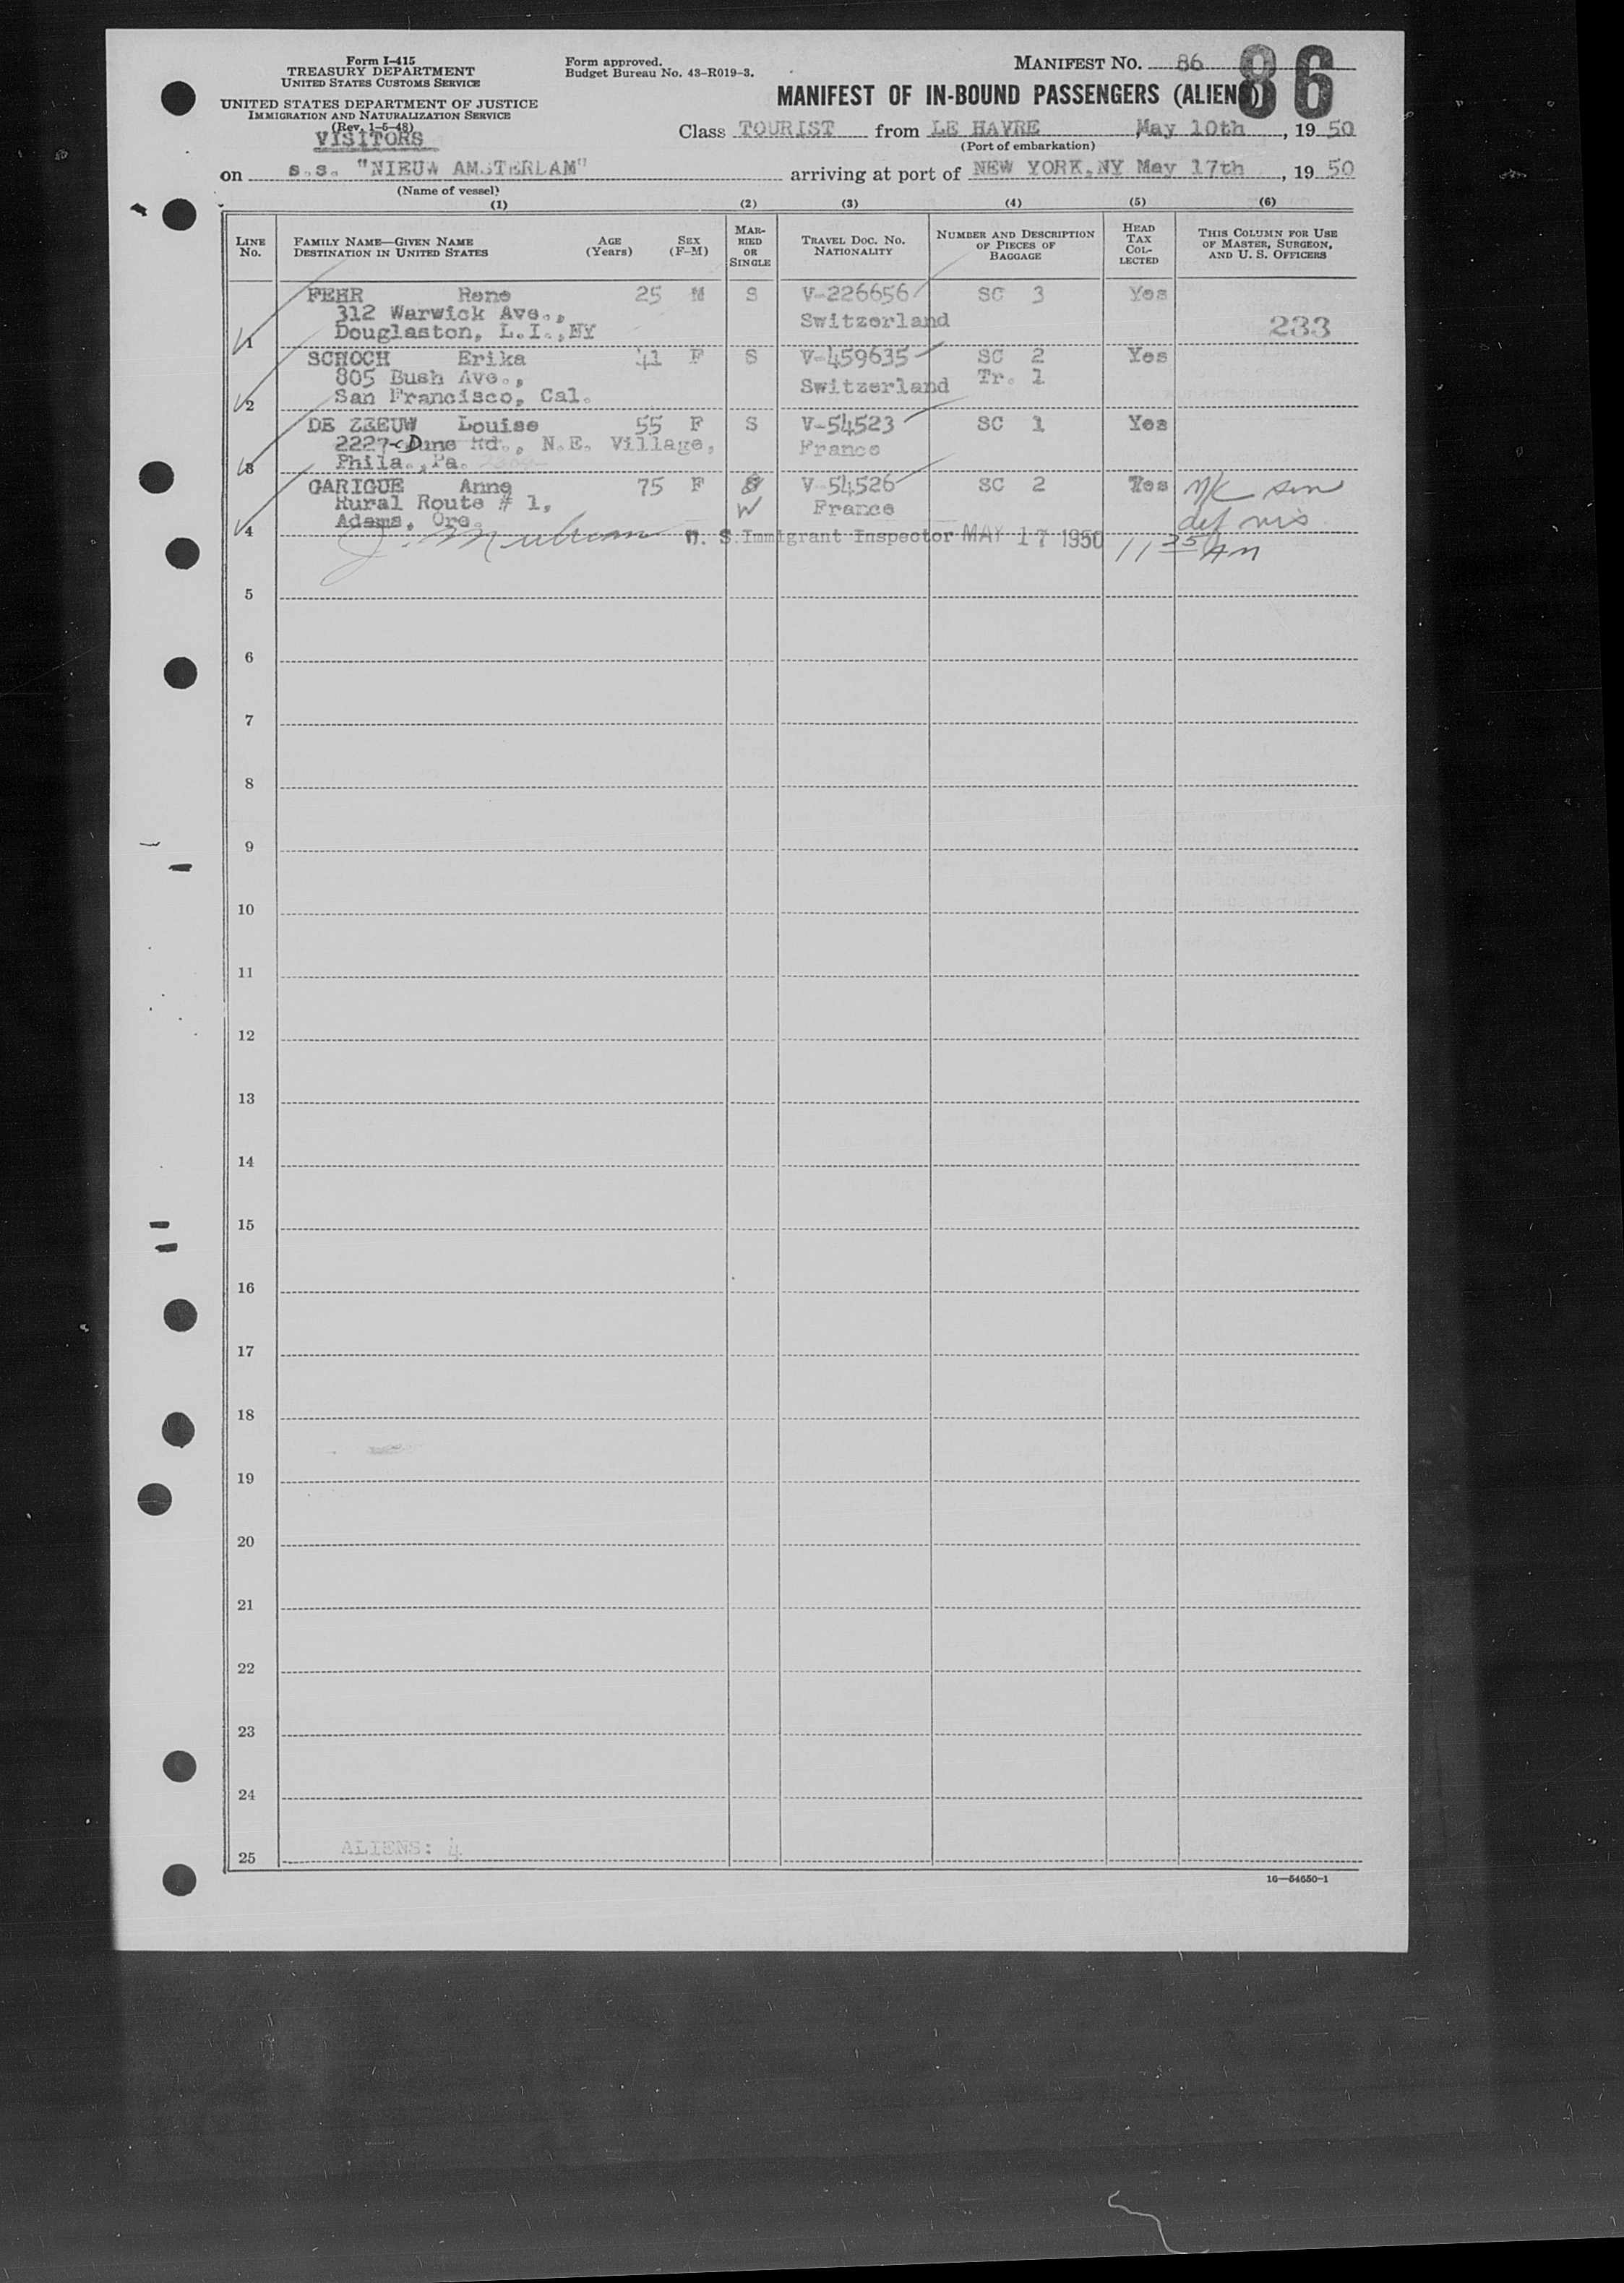 Form I-415
TREASURY DEPARTMENT
UNITED STATES CUSTOMS SERVICE
UNITED STATES DEPARTMENT OF JUSTICE
IMMIGRATION AND NATURALIZATION SERVICE
(Rev. 1-5-48)
VISITORS
Form approved.
Budget Bureau No. 43-R019-3.
MANIFEST NO. 86
86
MANIFEST OF IN-BOUND PASSENGERS (ALIENS)
Class TOURIST from LE HAVRE, May 10th, 1950
(Port of embarkation)
on s.s. "NIEUW AMSTERDAM" arriving at port of NEW YORK, NY May 17th, 1950
(Name of vessel)
(1) (2) (3) (4) (5) (6)
LINE No.
FAMILY NAME—GIVEN NAME
DESTINATION IN UNITED STATES
AGE (Years)
SEX (F-M)
MARRIED OR SINGLE
TRAVEL DOC. NO. NATIONALITY
NUMBER AND DESCRIPTION OF PIECES OF BAGGAGE
HEAD TAX COLLECTED
THIS COLUMN FOR USE OF MASTER, SURGEON, AND U. S. OFFICERS
FEHR Rene 25 M S V-226656 SC 3 Yes
312 Warwick Ave., Switzerland
1 Douglaston, L.I.,NY 233
SCHOCH Erika 41 F S V-459635 SC 2 Yes
805 Bush Ave., Switzerland Tr. 1
2 San Francisco, Cal.
DE ZEEUW Louise 55 F S V-54523 SC 1 Yes
2227-C Dune Rd., N.E. Village, France
3 Phila.,Pa.
GARIGUE Anne 75 F S V-54526 SC 2 Yes
Rural Route # 1, W France
4 Adams, Ore. def vis
U. S. Immigrant Inspector MAY 17 1950 11 25 AM
5
6
7
8
9
10
11
12
13
14
15
16
17
18
19
20
21
22
23
24
25 ALIENS: 4
16—54650-1